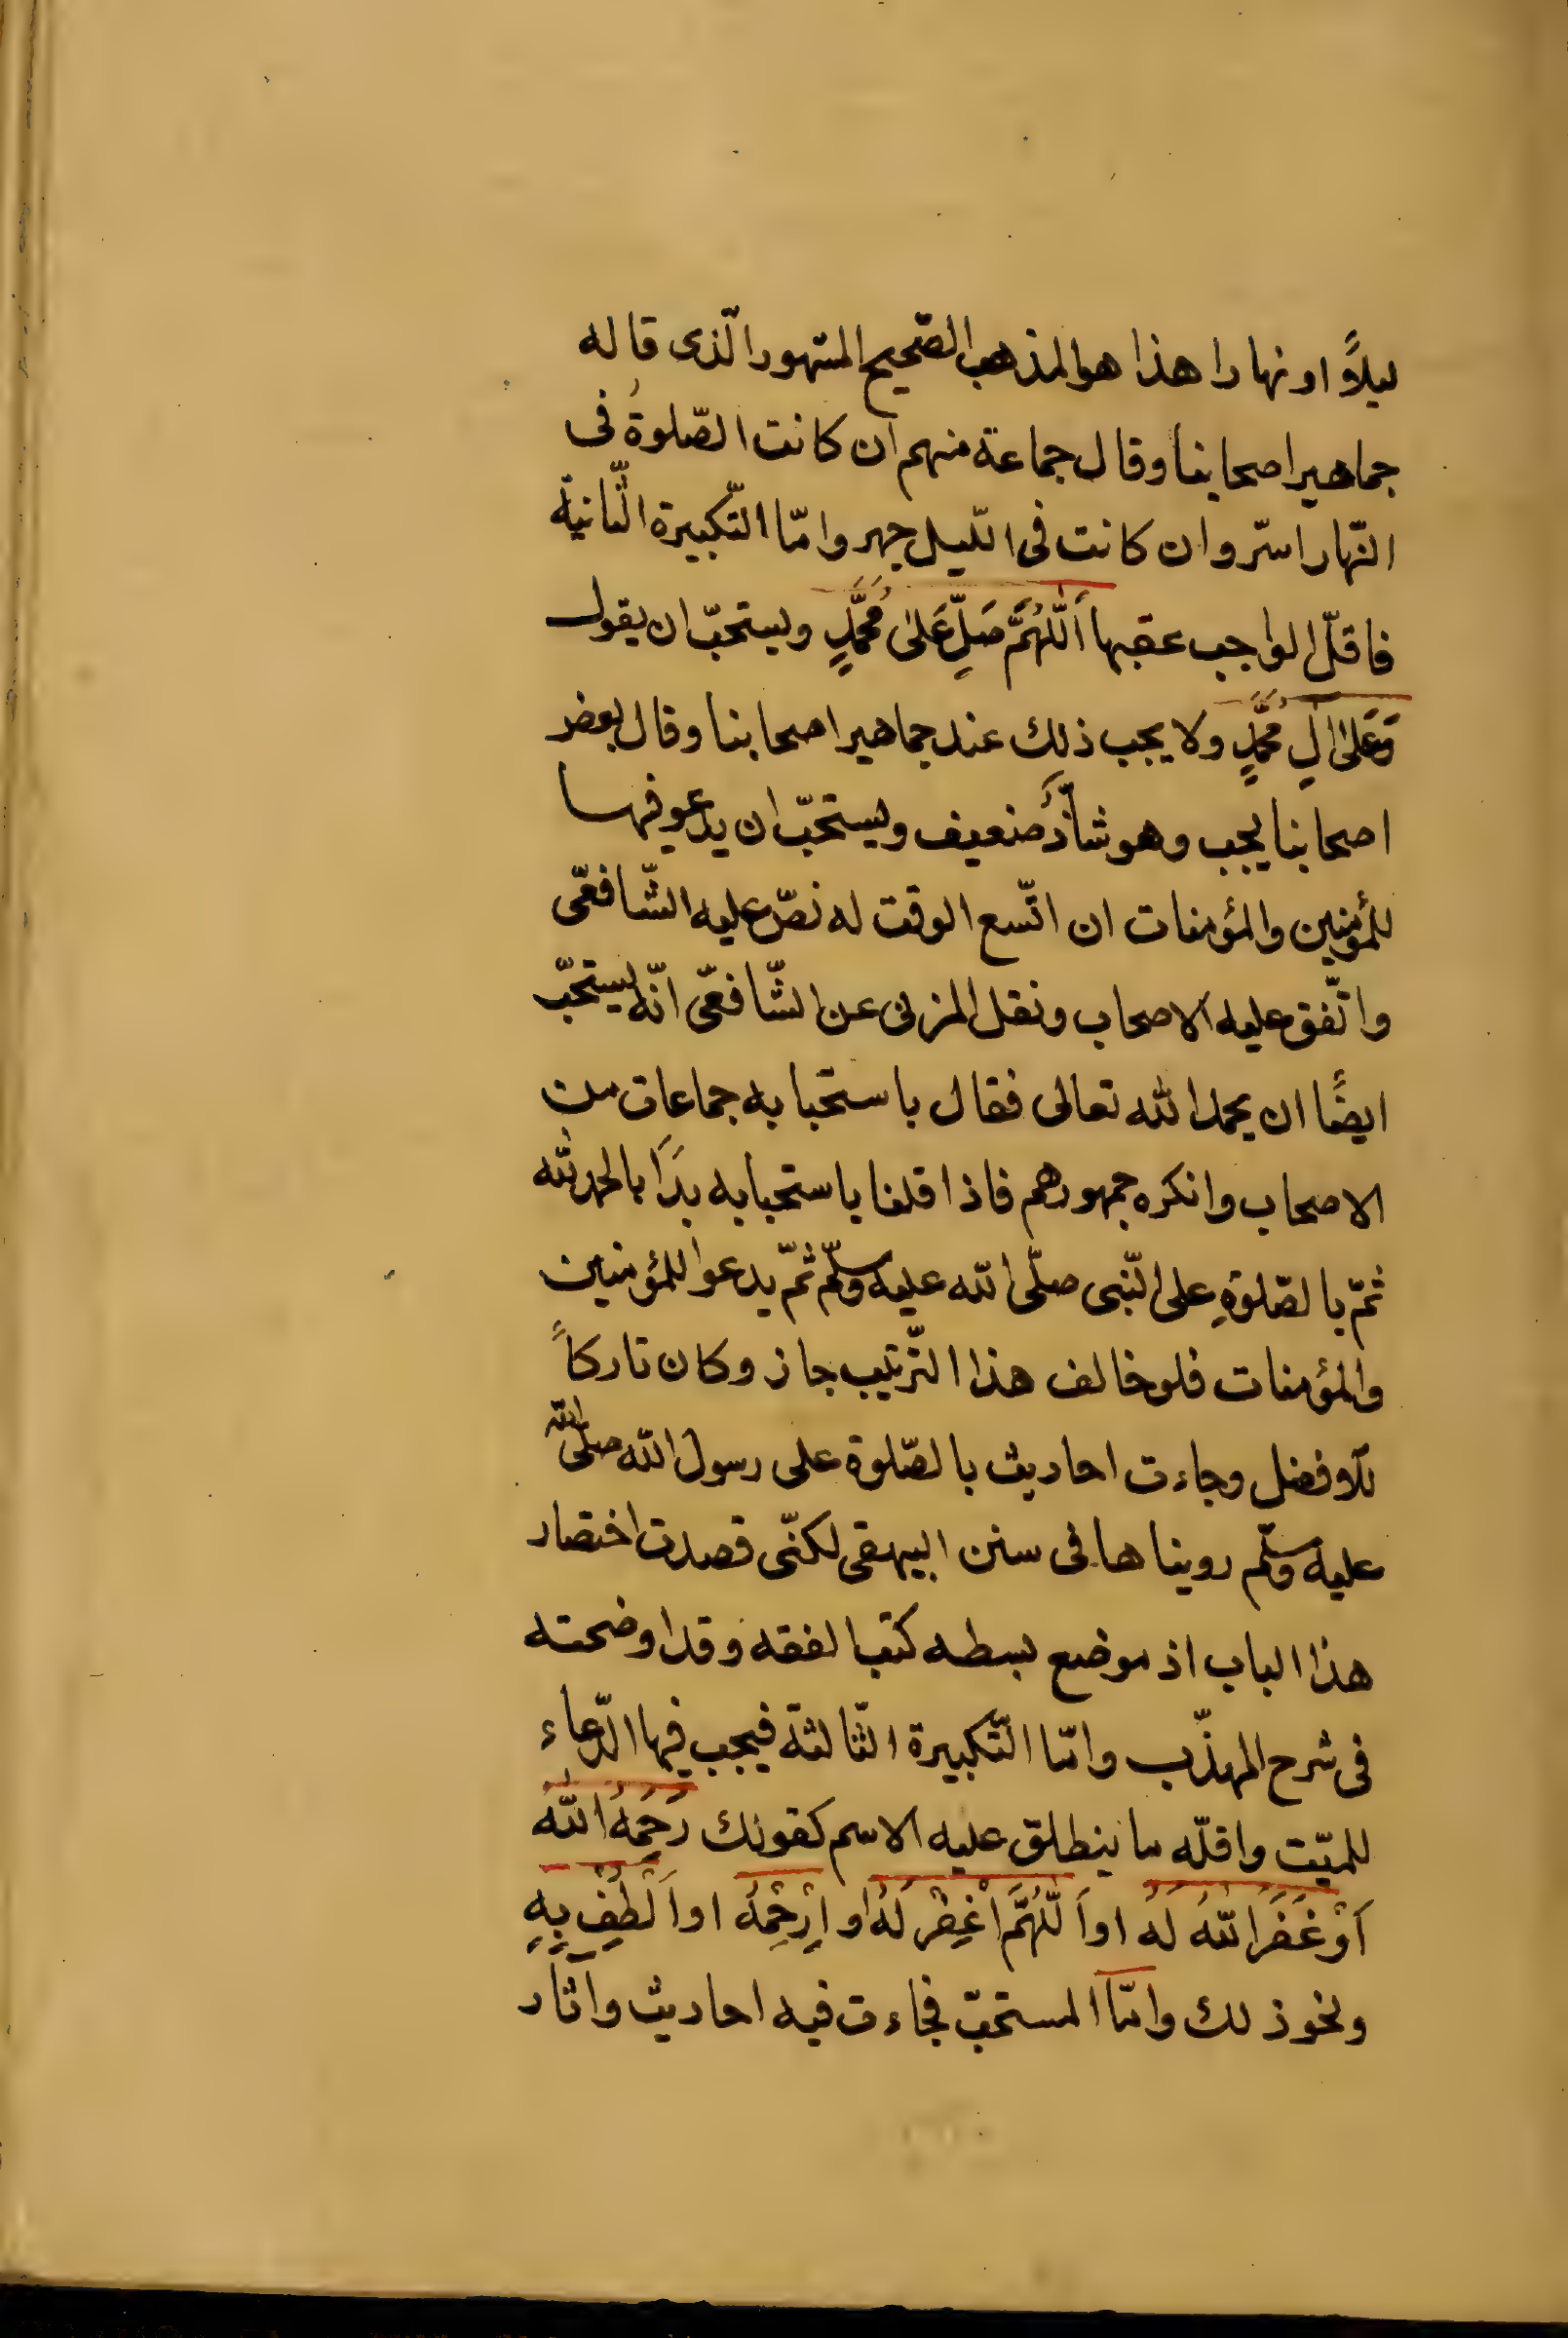 ليلًا او نهارا هذا هو المذهب الصّحيح المشهور الّذى قاله
جماهير اصحابنا وقال جماعة منهم ان كانت الصّلوةُ فى
النّهار اسّر وان كانت فى اللّيل جهر وامّا التّكبيرة الثّانية
فاقلّ الواجب عقبها اَللّٰهُمَّ صَلِّ عَلىٰ مُحَمَّدٍ ويستحبّ ان يقول
وَعَلىٰ اٰلِ مُحَمَّدٍ ولا يجب ذلك عند جماهير اصحابنا وقال بعض
اصحابنا يجب وهو شاذّ ضعيف ويستحبّ ان يدعو فيها
للمؤمنين والمؤمنات ان اتّسع الوقت له نصّ عليه الشّافعّى
واتّفق عليه الاصحاب ونقل المزنى عن الشّافعّى انّه يستحبّ
ايضًا ان يحمد الله تعالى فقال باستحبابه جماعات من
الاصحاب وانكره جمهورهم فاذا قلنا باستحبابه بدَاَ بالحمد لله
ثمّ بالصّلوةِ على النّبى صلّى الله عليه وسلّم ثمّ يدعوا للمؤمنين
والمؤمنات فلو خالف هذا التّرتيب جاز وكان تاركاً
للافضل وجاءت احاديث بالصّلوة على رسول الله صلّى الله
عليه وسلّم رويناها فى سنن البيهقى لكنّى قصدت اختصار
هذا الباب اذ موضع بسطه كتب الفقه وقد اوضحته
فى شرح المهذّب وامّا التّكبيرة الثّالثة فيجب فيها الدّعاء
للميّت واقلّه ما ينطلق عليه الاسم كقولك رَحِمَهُ اللّٰهُ
اَوْ غَفَرَ اللّٰهُ لَهُ او اَللّٰهُمَّ اغْفِرْ لَهُ او اِرْحَمْهُ او اَلْطُفْ بِهِ
ونحو ذلك وامّا المستحبّ فجاءت فيه احاديث وآثار